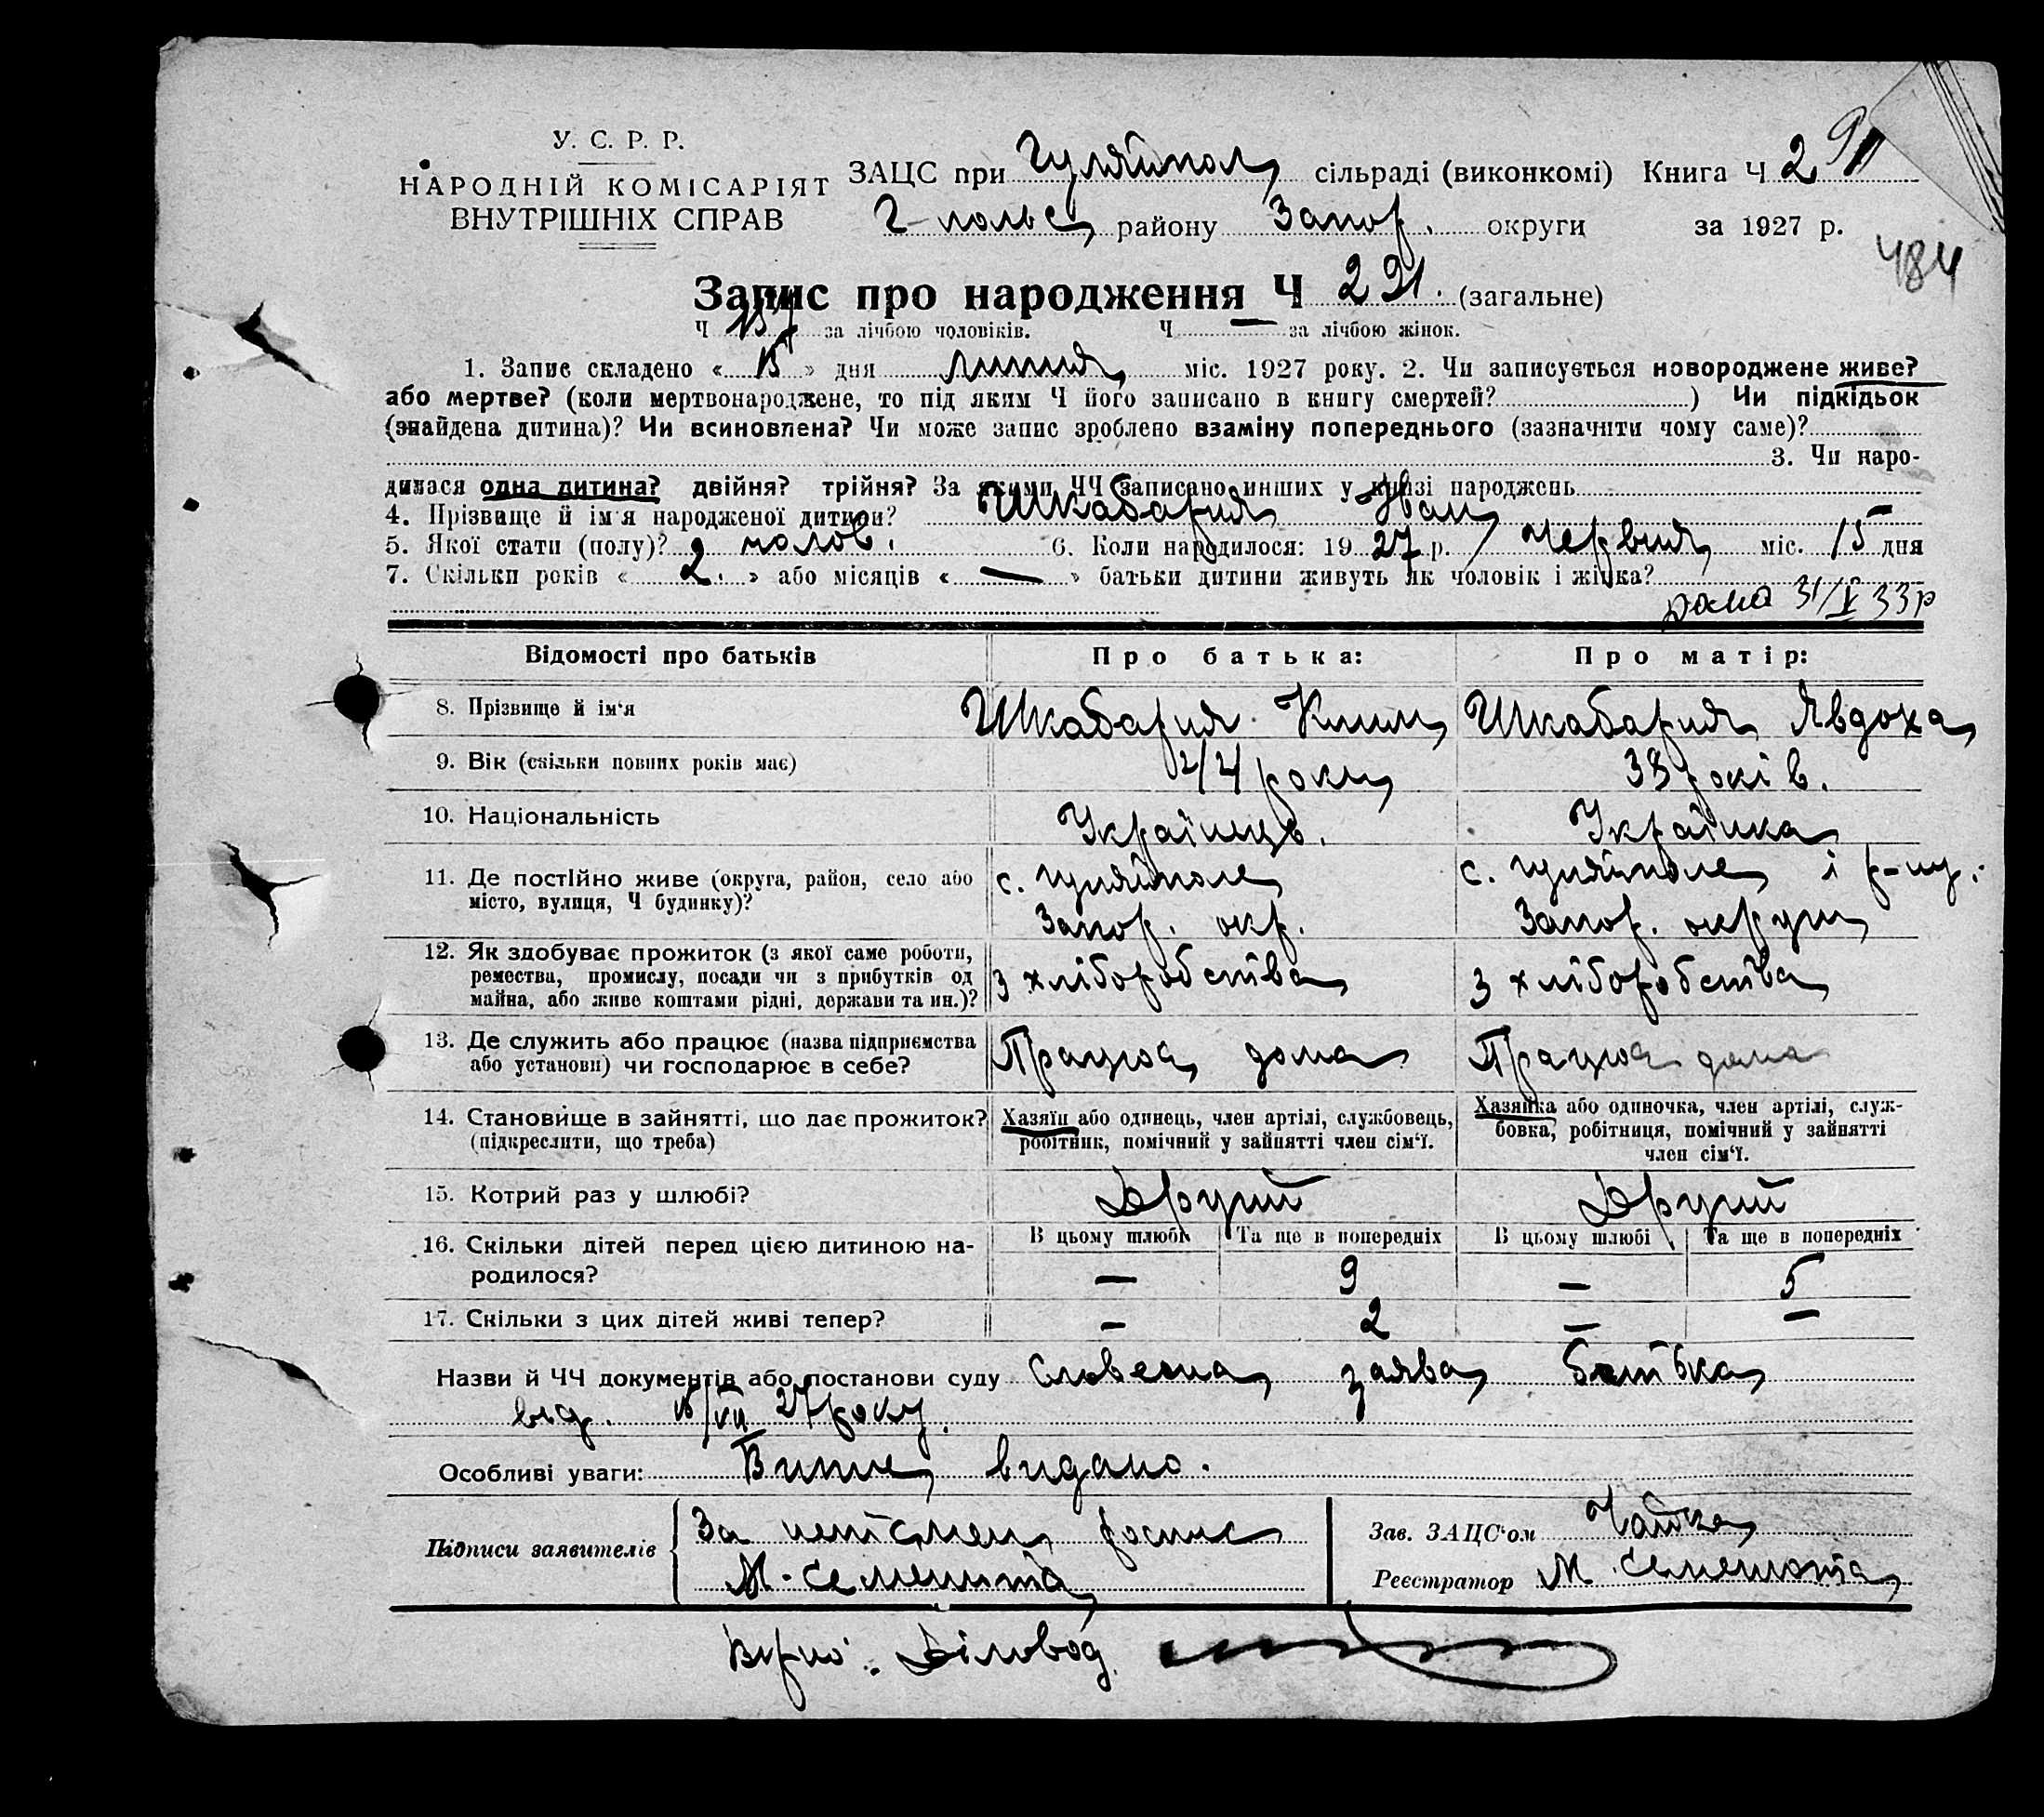 У. С. Р. Р.
НАРОДНІЙ КОМІСАРІЯТ
ВНУТРІШНІХ СПРАВ
ЗАЦС при Гуляйпол сільраді (виконкомі) Книга Ч 2
Г-польс району Запор. округи за 1927 р.
484
Запис про народження Ч 291. (загальне)
Ч 157 за лічбою чоловіків. Ч — за лічбою жінок.
1. Запис складено « 15 » дня липня міс. 1927 року. 2. Чи записується новороджене живе?
або мертве? (коли мертвонароджене, то під яким Ч його записано в книгу смертей? ) Чи підкідьок
(знайдена дитина)? Чи всиновлена? Чи може запис зроблено взаміну попереднього (зазначити чому саме)?
3. Чи наро-
дилася одна дитина? двійня? трійня? За якими ЧЧ записано инших у книзі народжень
4. Прізвище й ім'я народженої дитини? Шкабарня Іван
5. Якої стати (полу)? чолов. 6. Коли народилося: 1927 р. червня міс. 15 дня
7. Скільки років « 2. » або місяців « — » батьки дитини живуть як чоловік і жінка?
31/V 33р
Відомості про батьків Про батька: Про матір:
8. Прізвище й ім'я Шкабарня Клим Шкабарня Явдоха
9. Вік (скільки повних років має) 44 роки 38 років.
10. Національність Українець. Українка
11. Де постійно живе (округа, район, село або с. Гуляйполе с. Гуляйполе і р-ну.
місто, вулиця, Ч будинку)? Запор. окр. Запор. округи
12. Як здобуває прожиток (з якої саме роботи,
ремества, промислу, посади чи з прибутків од
майна, або живе коштами рідні, держави та ин.)? З хліборобства З хліборобства
13. Де служить або працює (назва підприємства
або установи) чи господарює в себе? Працює дома Працює дома
14. Становище в зайнятті, що дає прожиток? Хазяїн або одинець, член артілі, службовець, Хазяйка або одиночка, член артілі, служ-
(підкреслити, що треба) робітник, помічний у зайнятті член сім'ї. бовка, робітниця, помічний у зайнятті
член сім'ї.
15. Котрий раз у шлюбі? Другий Другий
16. Скільки дітей перед цією дитиною на- В цьому шлюбі Та ще в попередніх В цьому шлюбі Та ще в попередніх
родилося? — 9 — 5
17. Скільки з цих дітей живі тепер? — 2 — —
Назви й ЧЧ документів або постанови суду Словесна заява батька
від. 15/VII 27 року.
Особливі уваги: видано.
Підписи заявителів За роспис
М. Семенюта
Зав. ЗАЦС'ом
Реєстратор М. Семенюта
Вірно: Діловод